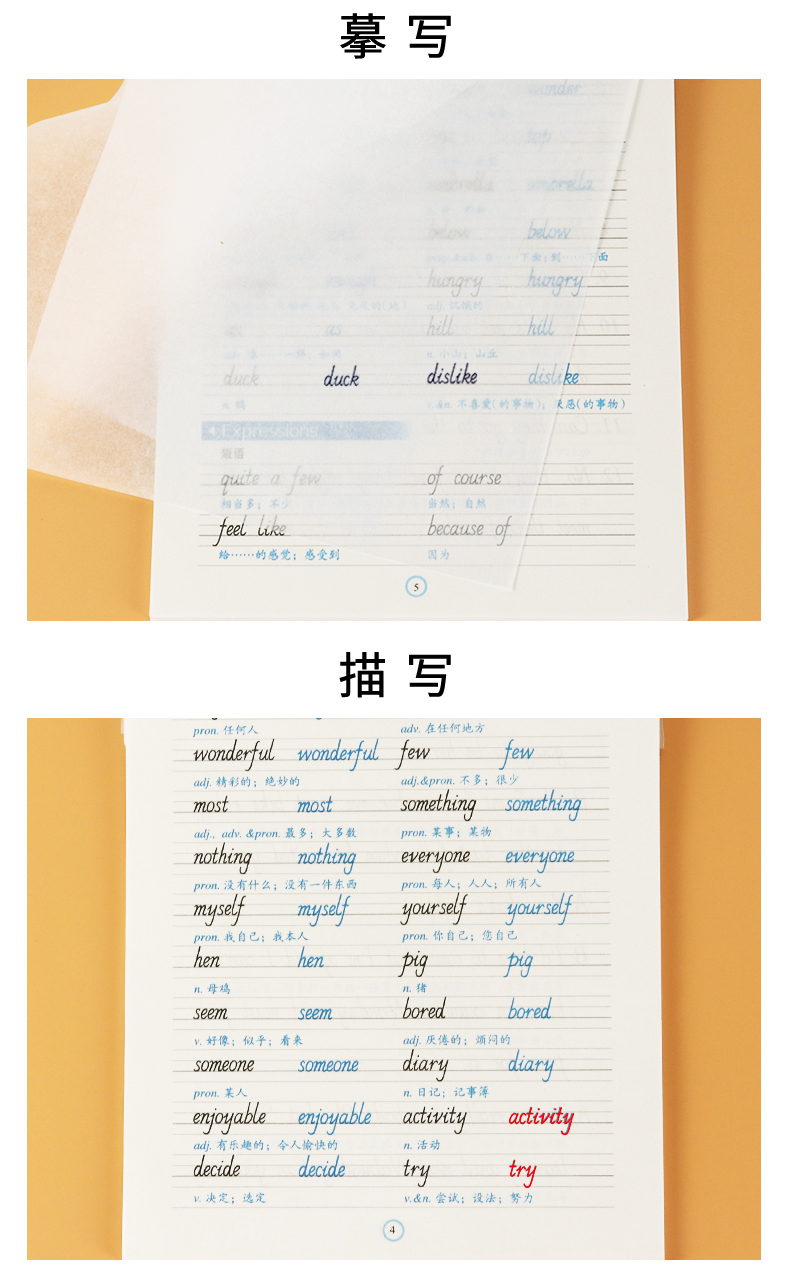 摹写
wonder
umbrella umbrella
below below
下面；到……下面
hungry hungry
adj. 饥饿的
as as hill hill
n. 小山；山丘
duck duck dislike dislike
n. 鸭 v.&n. 不喜爱(的事物)；厌恶(的事物)
Expressions
短语
quite a few of course
相当多；不少 当然；自然
feel like because of
给……的感觉；感受到 因为
5
描写
pron. 任何人 adv. 在任何地方
wonderful wonderful few few
adj. 精彩的；绝妙的 adj.&pron. 不多；很少
most most something something
adj., adv. &pron. 最多；大多数 pron. 某事；某物
nothing nothing everyone everyone
pron. 没有什么；没有一件东西 pron. 每人；人人；所有人
myself myself yourself yourself
pron. 我自己；我本人 pron. 你自己；您自己
hen hen pig pig
n. 母鸡 n. 猪
seem seem bored bored
v. 好像；似乎；看来 adj. 厌倦的；烦闷的
someone someone diary diary
pron. 某人 n. 日记；记事簿
enjoyable enjoyable activity activity
adj. 有乐趣的；令人愉快的 n. 活动
decide decide try try
v. 决定；选定 v.&n. 尝试；设法；努力
4